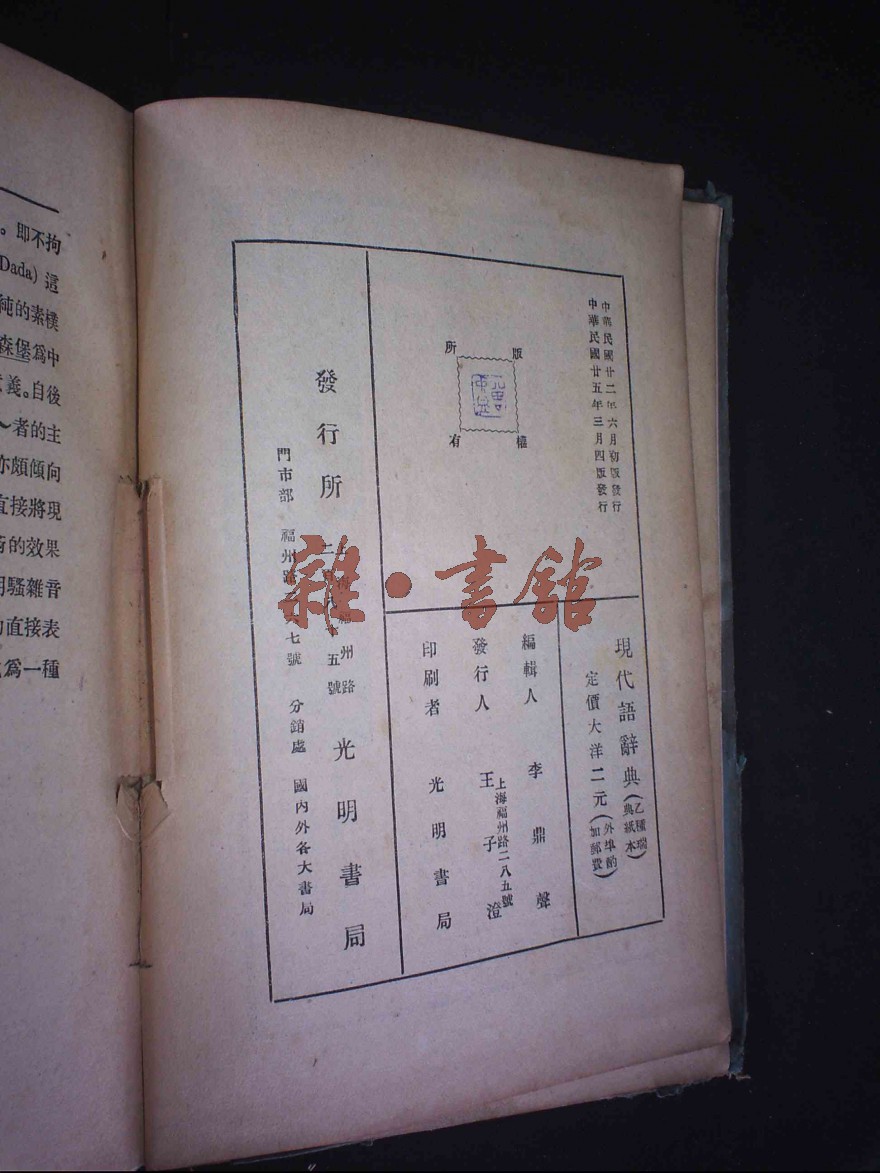 中華民國廿二年六月初版發行
中華民國廿五年三月四版發行
版權所有
現代語辭典(乙種瑞典紙本)
定價大洋二元(外埠酌加郵費)
編輯人 李鼎聲
發行人 王子澄
上海福州路二八五號
印刷者 光明書局
發行所 光明書局
上海福州路
二八五號
門市部 福州路
七號 分銷處 國內外各大書局
雜·書館
。即不拘
Dada) 這
純的素樸
森堡爲中
義。自後
者的主
亦頗傾向
直接將現
的效果
用騷雜音
直接表
爲一種